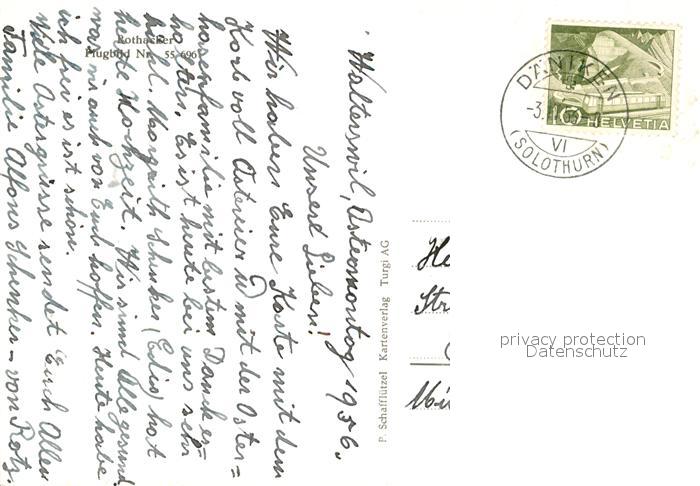 Rothacker
Flugbild Nr. 55 696
Walterswil, Ostermontag 1956.
Unsere Lieben!
Wir haben Eure Karte mit dem
Korb voll Ostereier u mit der Oster=
hasenfamilie mit bestem Dank er=
halten. Es ist heute bei uns sehr
kühl. Margrith Schenker, (Edis) hat
heute Hochzeit. Wir sind Alle gesund
was wir auch von Euch hoffen. Heute habe
ich frei es ist schön.
Viele Ostergrüsse sendet Euch Allen
Familie Alfons Schenker = von Rotz.
P. Schafflützel Kartenverlag Turgi AG
DÄNIKEN
-3.
VI
(SOLOTHURN)
10 HELVETIA
He
Str
privacy protection
Datenschutz